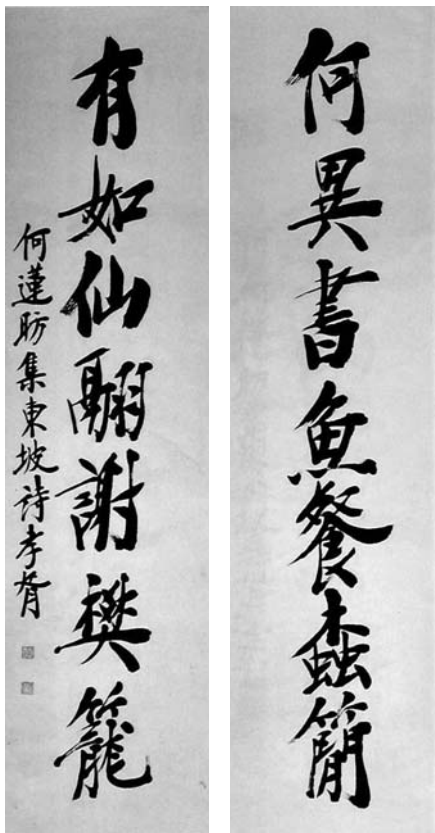 何異書魚餐螙簡
有如仙翮謝樊籠
何蓮昉集東坡詩孝胥